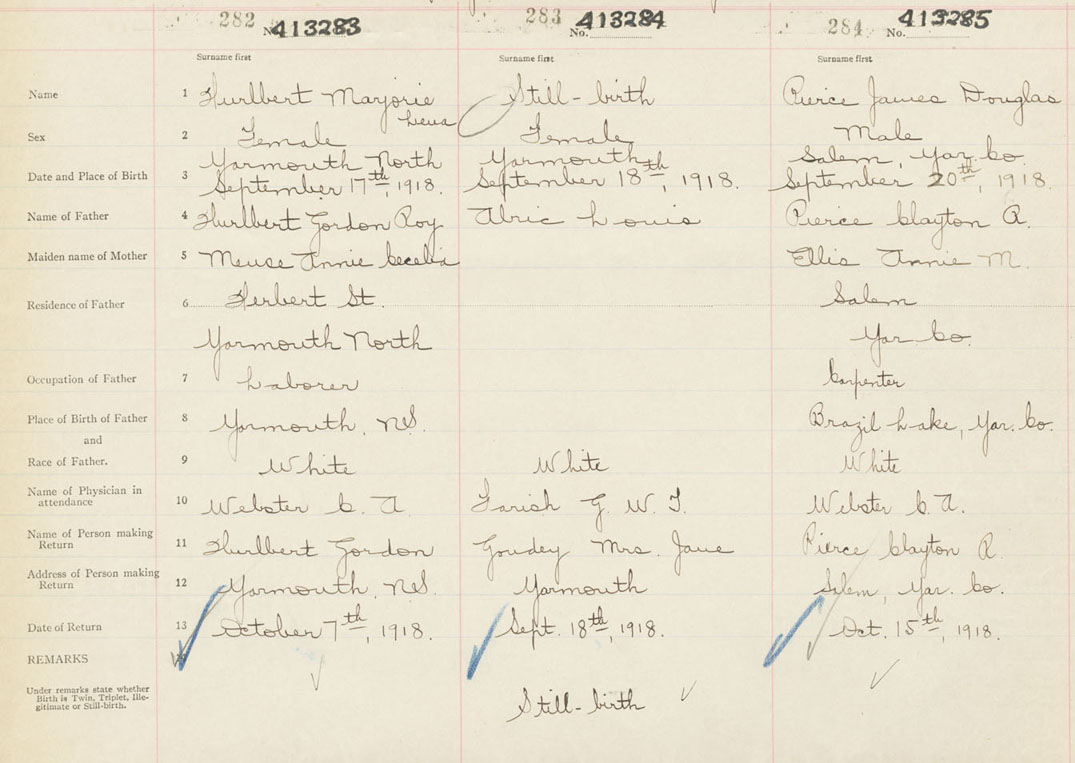 282 No. 413283
283 No. 413284
284 No. 413285
Surname first Surname first Surname first
Name 1 Hurlbert Marjorie Still-birth Pierce James Douglas
Lena
Sex 2 Female Female Male
Yarmouth North Yarmouth Salem, Yar. Co.
Date and Place of Birth 3 September 17th, 1918. September 18th, 1918. September 20th, 1918.
Name of Father 4 Hurlbert Gordon Roy Alric Louis Pierce Clayton R.
Maiden name of Mother 5 Meuse Annie Cecelia Ellis Annie M.
Residence of Father 6 Herbert St. Salem
Yarmouth North Yar Co.
Occupation of Father 7 Laborer Carpenter
Place of Birth of Father 8 Yarmouth, N.S. Brazil Lake, Yar. Co.
and
Race of Father. 9 White White White
Name of Physician in
attendance 10 Webster C. A. Farish G. W. T. Webster C. A.
Name of Person making
Return 11 Hurlbert Gordon Goudey Mrs. Jane Pierce Clayton R.
Address of Person making
Return 12 Yarmouth, N.S. Yarmouth Salem, Yar. Co.
Date of Return 13 October 7th, 1918. Sept. 18th, 1918. Oct. 15th, 1918.
REMARKS
Under remarks state whether
Birth is Twin, Triplet, Ille-
gitimate or Still-birth. Still-birth